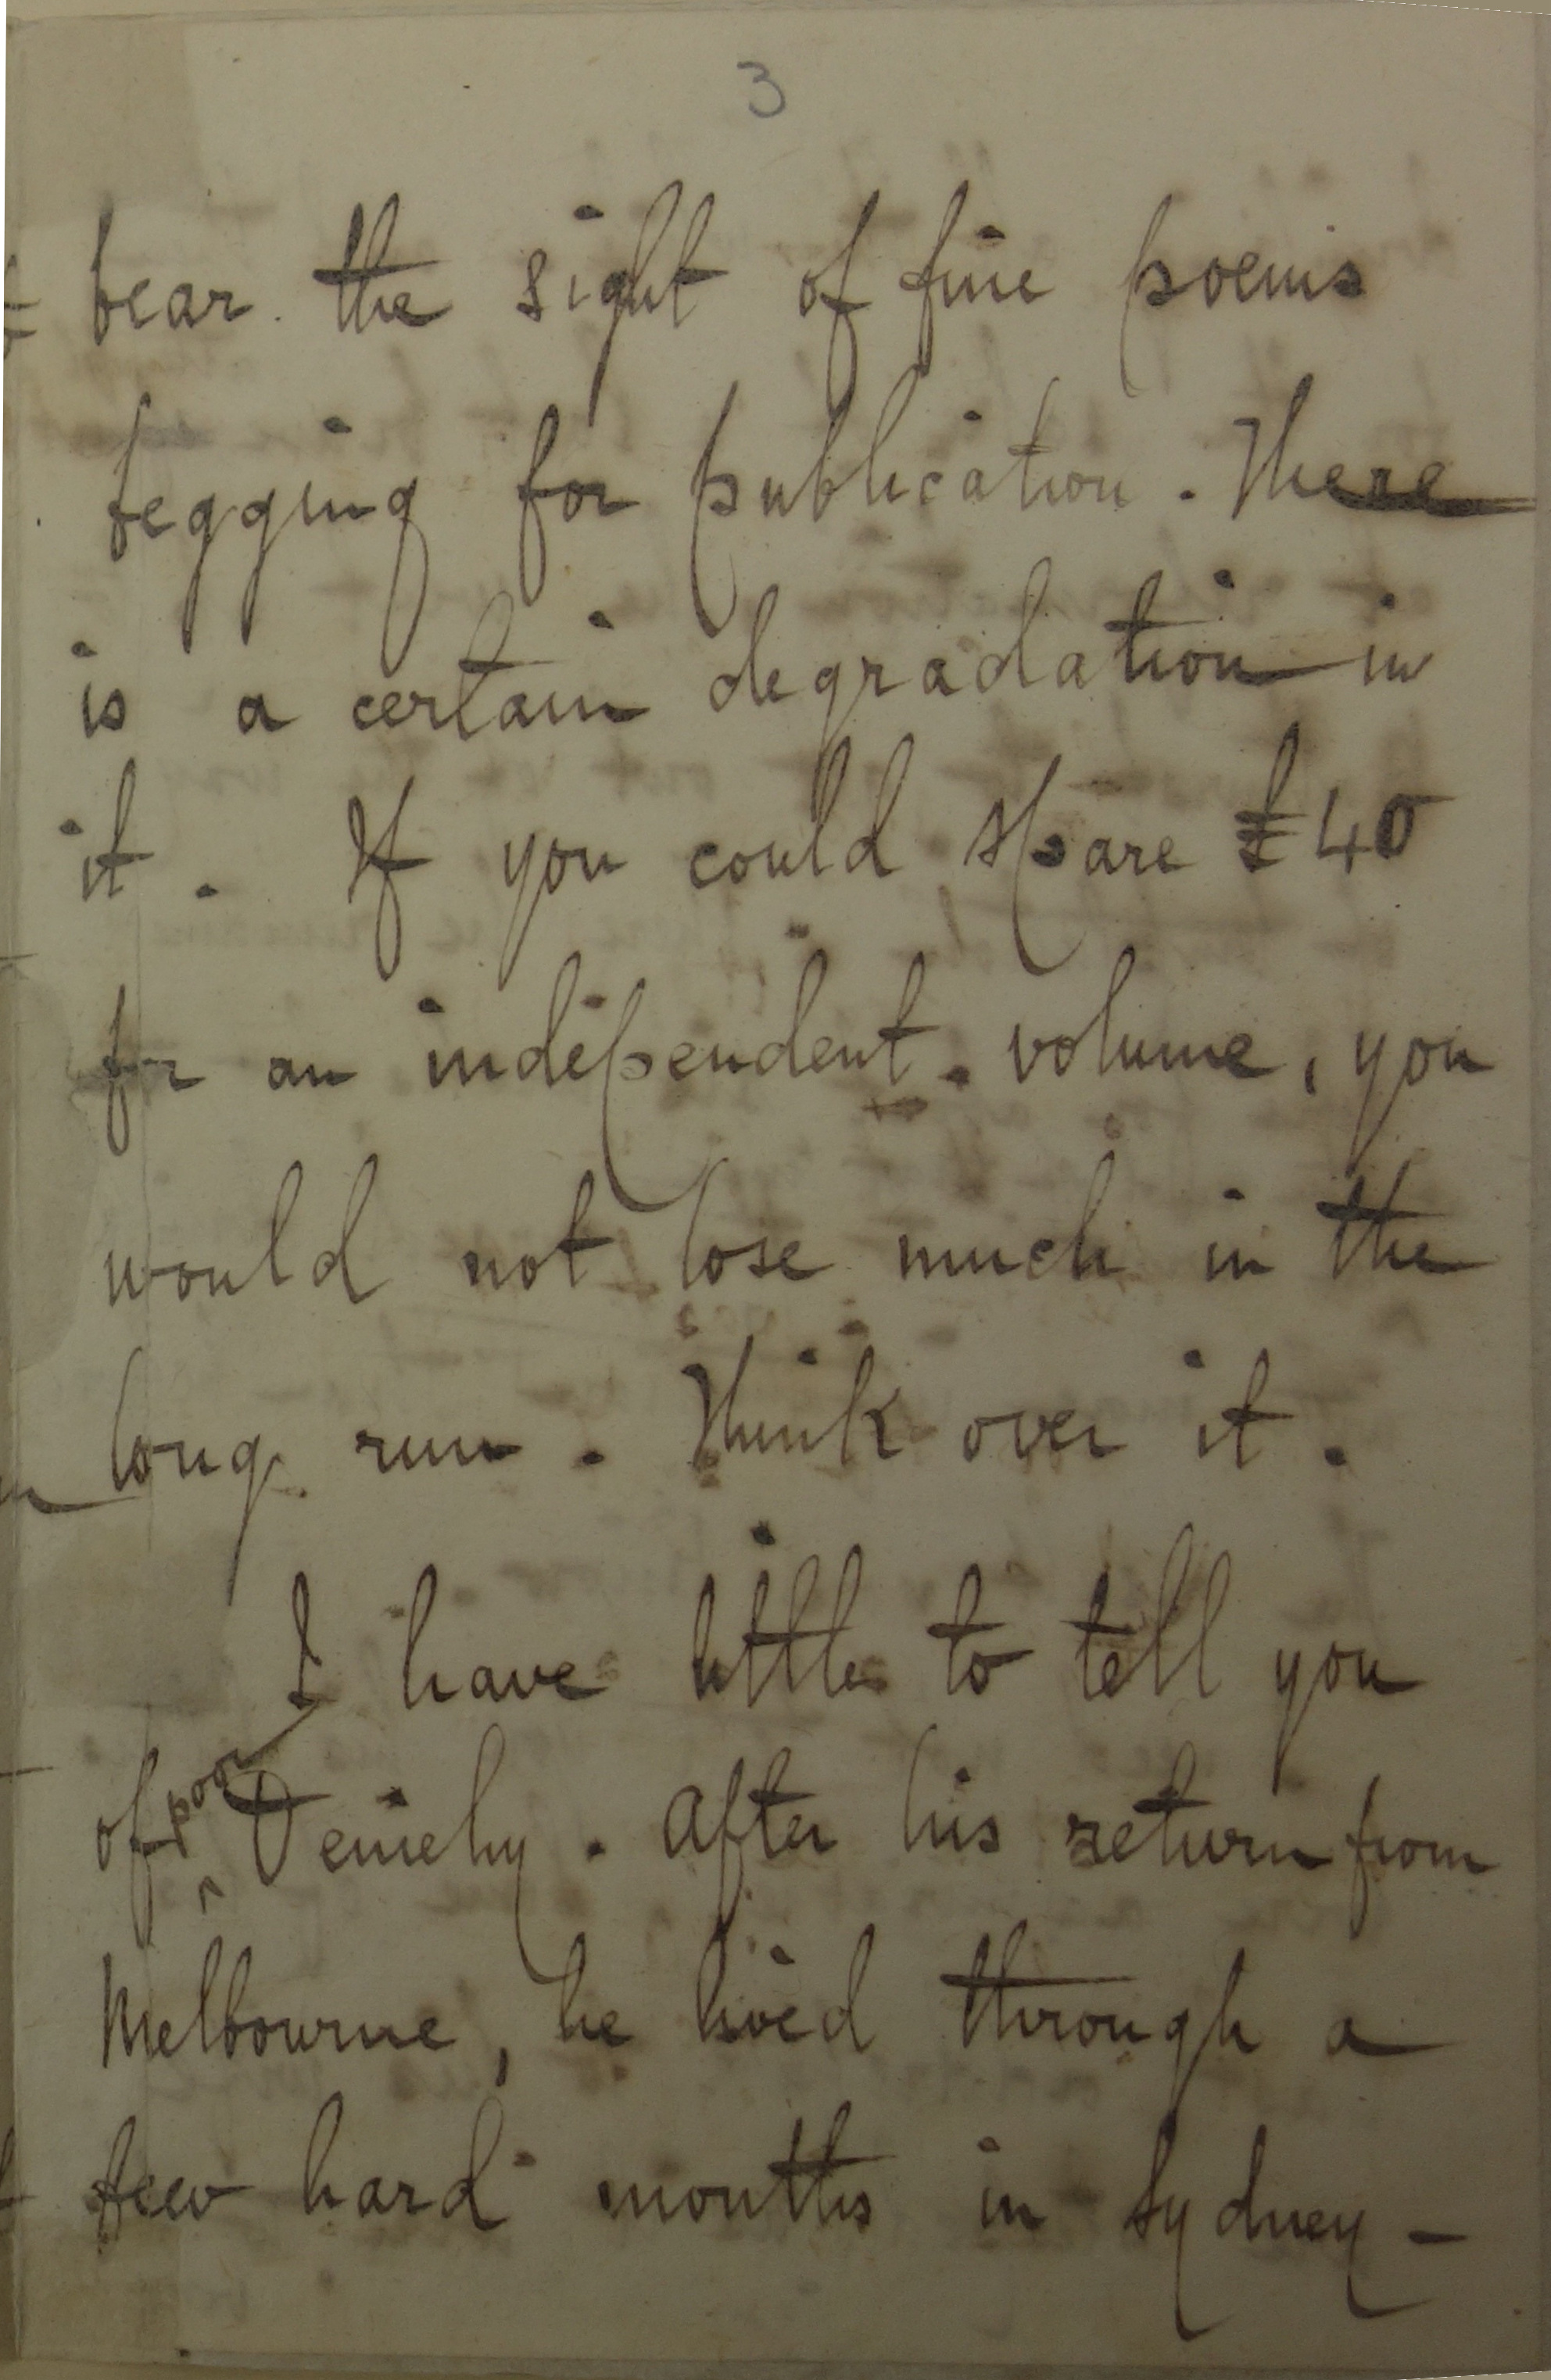 3
bear the sight of fine poems
begging for publication. There
is a certain degradation in
it. If you could spare £40
for an independent volume, you
would not lose much in the
long run. Think over it.
I have little to tell you
of poor Deniehy. After his return from
Melbourne, he lived through a
few hard months in Sydney —